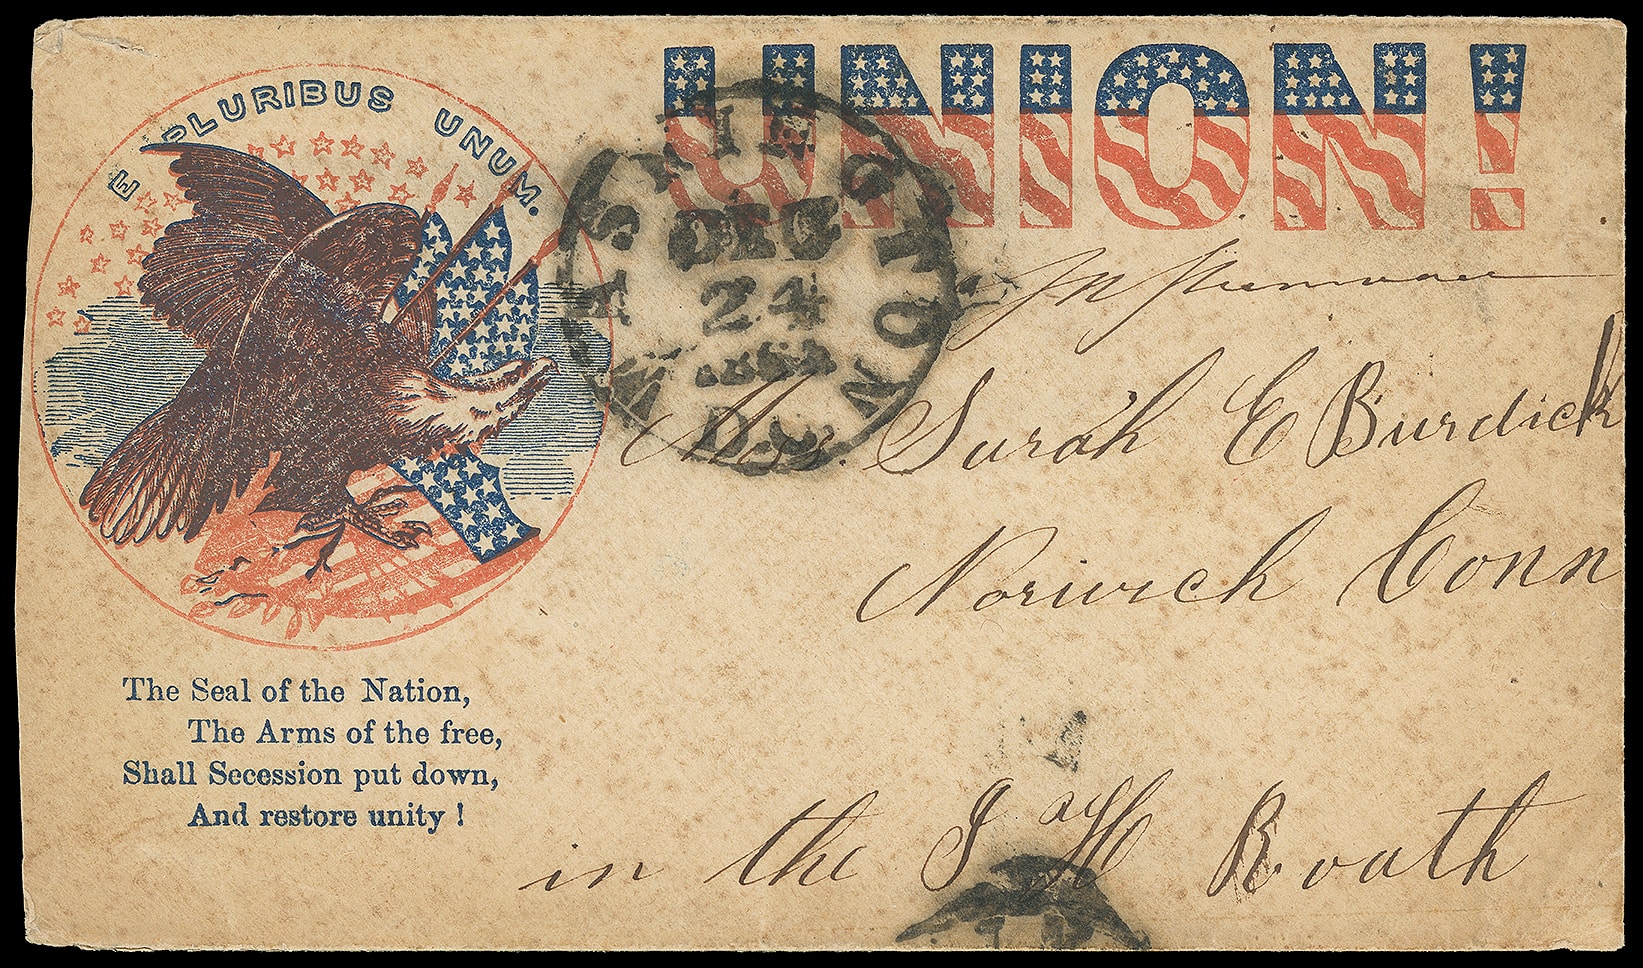 UNION!
E PLURIBUS UNUM.
WASHINGTON
DEC
24
D.C.
Mrs. Sarah E Burdick
Norwich Conn
The Seal of the Nation,
The Arms of the free,
Shall Secession put down,
And restore unity!
in the